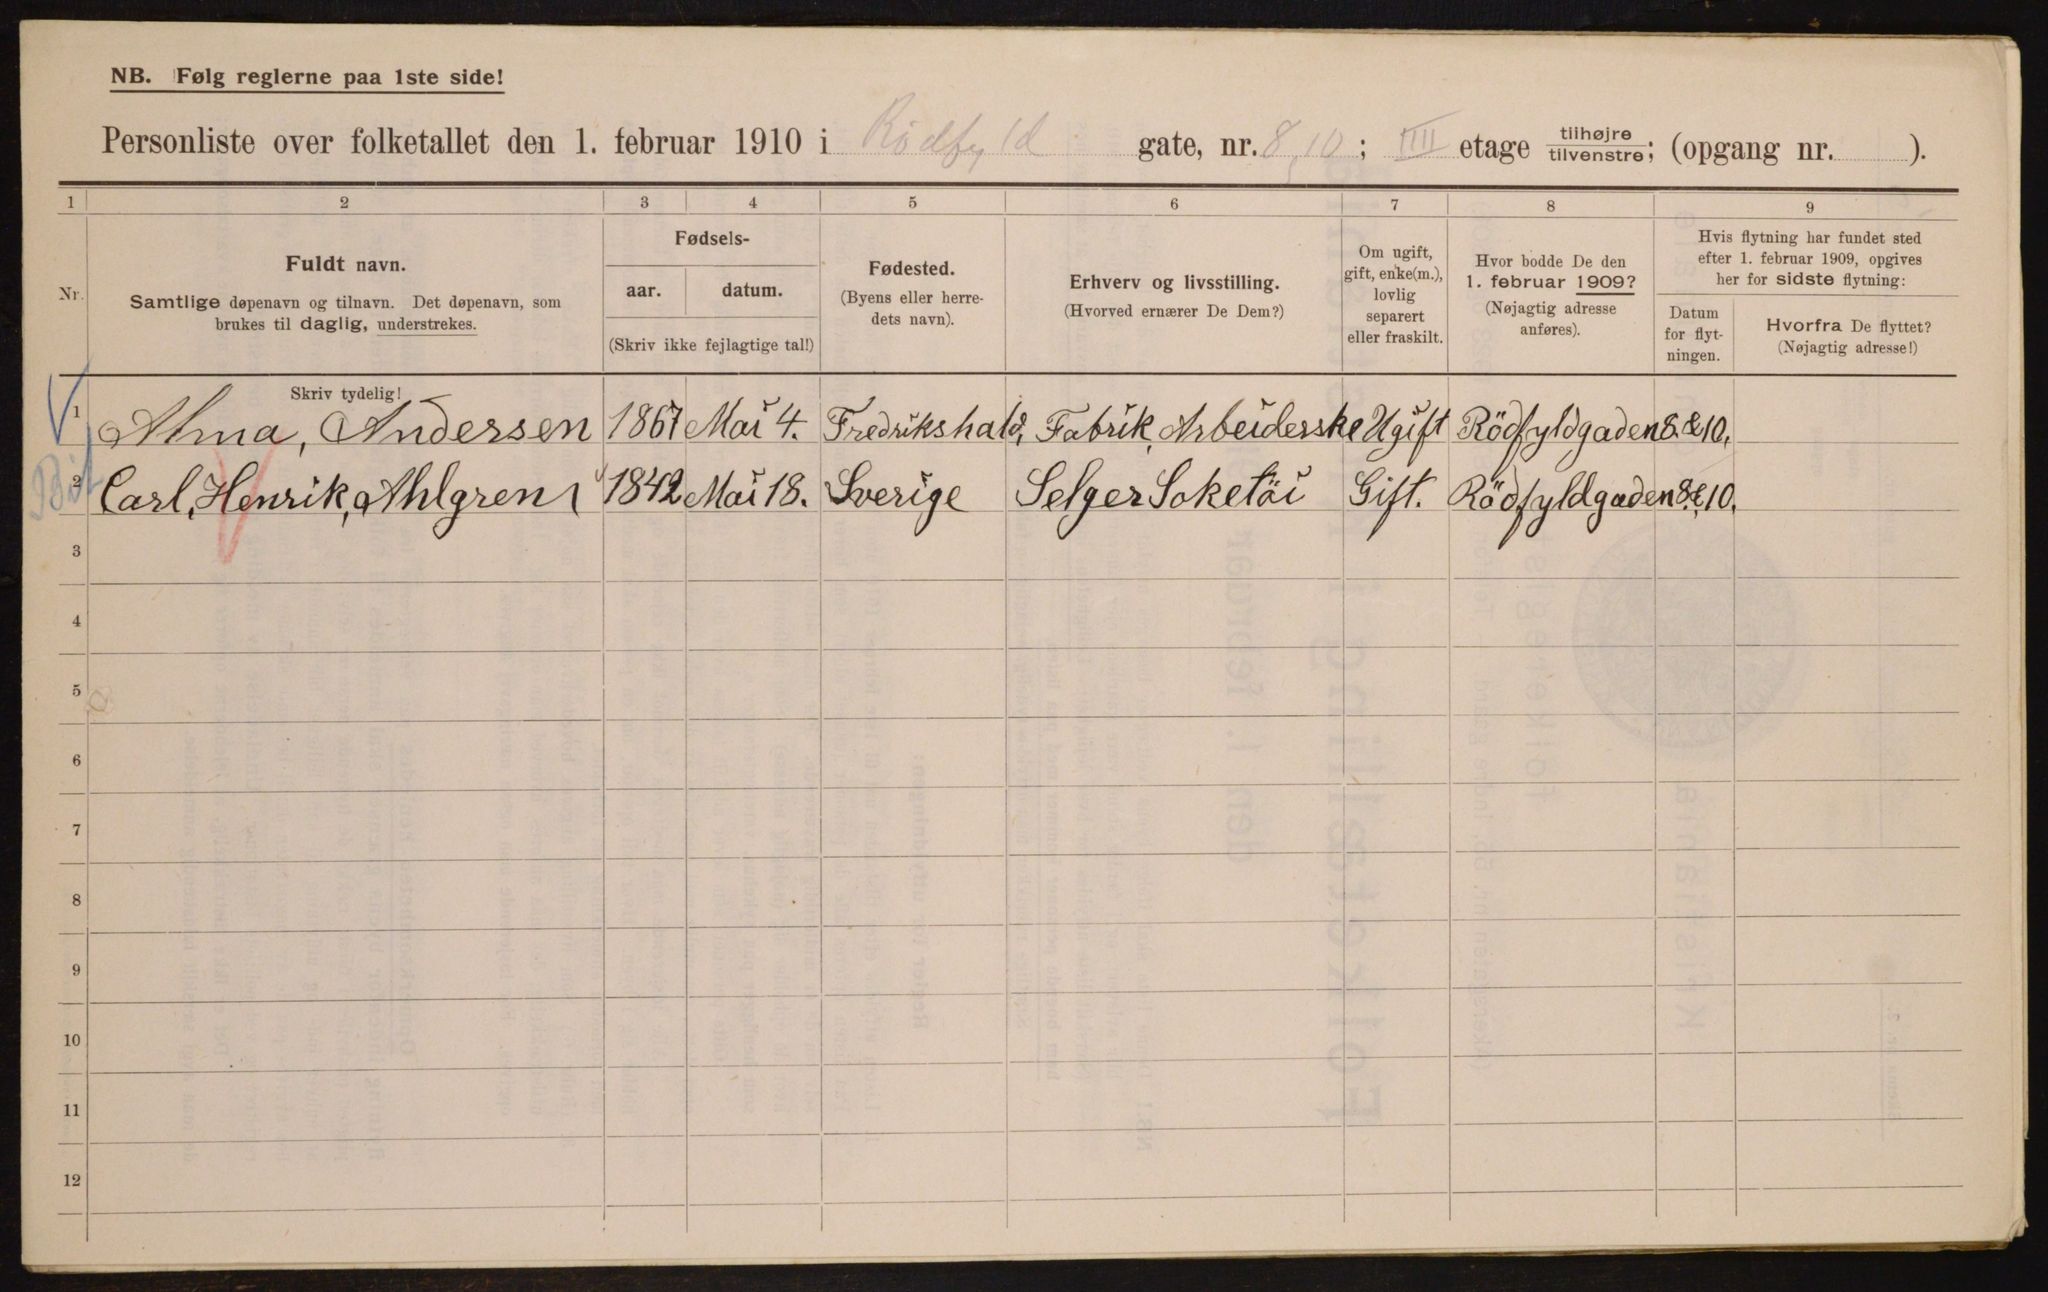 NB. Følg reglerne paa 1ste side!
Personliste over folketallet den 1. februar 1910 i Rödfyld gate, nr. 8, 10; IIII etage tilhøjre tilvenstre; (opgang nr. ).
1 2 3 4 5 6 7 8 9
Nr.
Fuldt navn.
Samtlige døpenavn og tilnavn. Det døpenavn, som
brukes til daglig, understrekes.
Fødsels-
aar. datum.
(Skriv ikke fejlagtige tal!)
Fødested.
(Byens eller herre-
dets navn).
Erhverv og livsstilling.
(Hvorved ernærer De Dem?)
Om ugift,
gift, enke(m.),
lovlig
separert
eller fraskilt.
Hvor bodde De den
1. februar 1909?
(Nøjagtig adresse
anføres).
Hvis flytning har fundet sted
efter 1. februar 1909, opgives
her for sidste flytning:
Datum
for flyt-
ningen.
Hvorfra De flyttet?
(Nøjagtig adresse!)
Skriv tydelig!
1 Alma, Andersen 1867 Mai 4. Fredrikshald, Fabrik, Arbeiderske Ugift Rödfyldgaden 8 & 10.
2 Carl, Henrik, Ahlgren 1842 Mai 18. Sverige Selger Soketöi Gift. Rödfyldgaden 8 & 10.
3
4
5
6
7
8
9
10
11
12